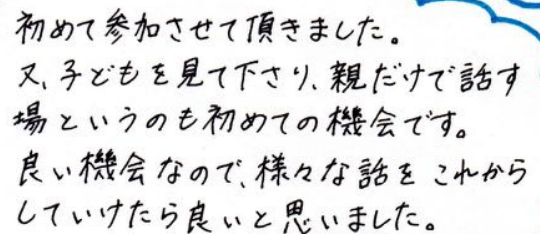 初めて参加させて頂きました。
又、子どもを見て下さり、親だけで話す
場というのも初めての機会です。
良い機会なので、様々な話をこれから
していけたら良いと思いました。